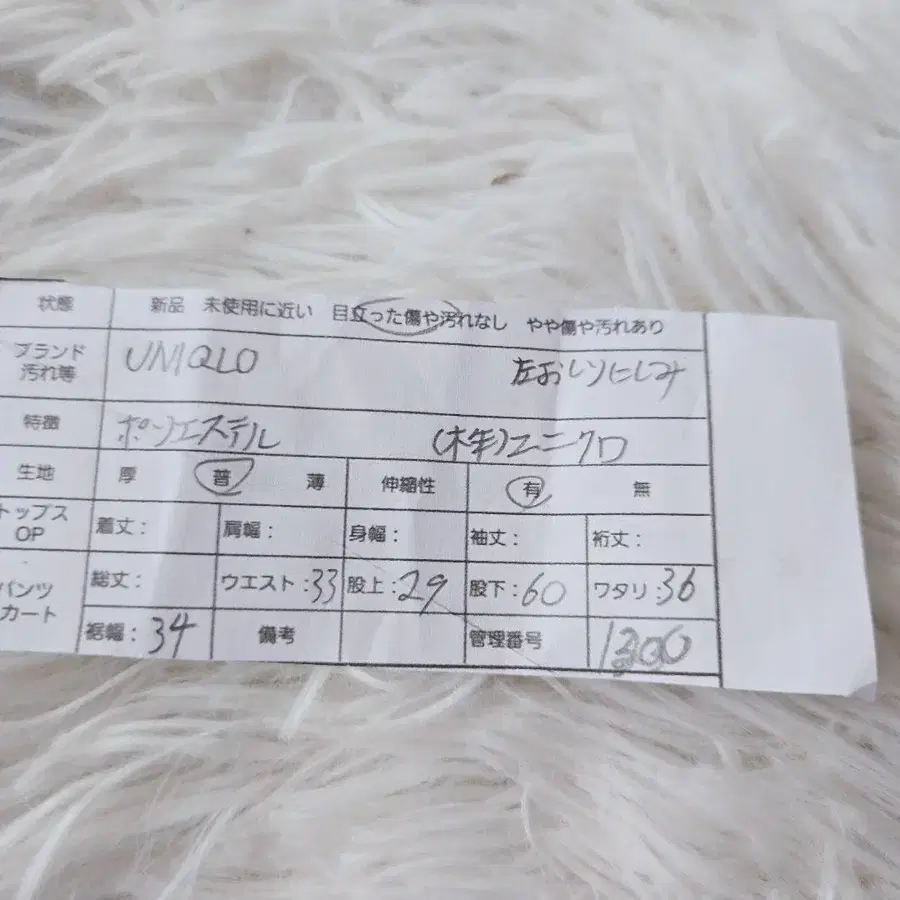 状態 新品 未使用に近い 目立った傷や汚れなし やや傷や汚れあり
ブランド UNIQLO 左おしりにしみ
汚れ等
特徴 ポリエステル (株)ユニクロ
生地 厚 普 薄 伸縮性 有 無
トップス 着丈: 肩幅: 身幅: 袖丈: 裄丈:
OP
パンツ 総丈: ウエスト:33 股上:29 股下:60 ワタリ:36
カート 裾幅:34 備考 管理番号 1300